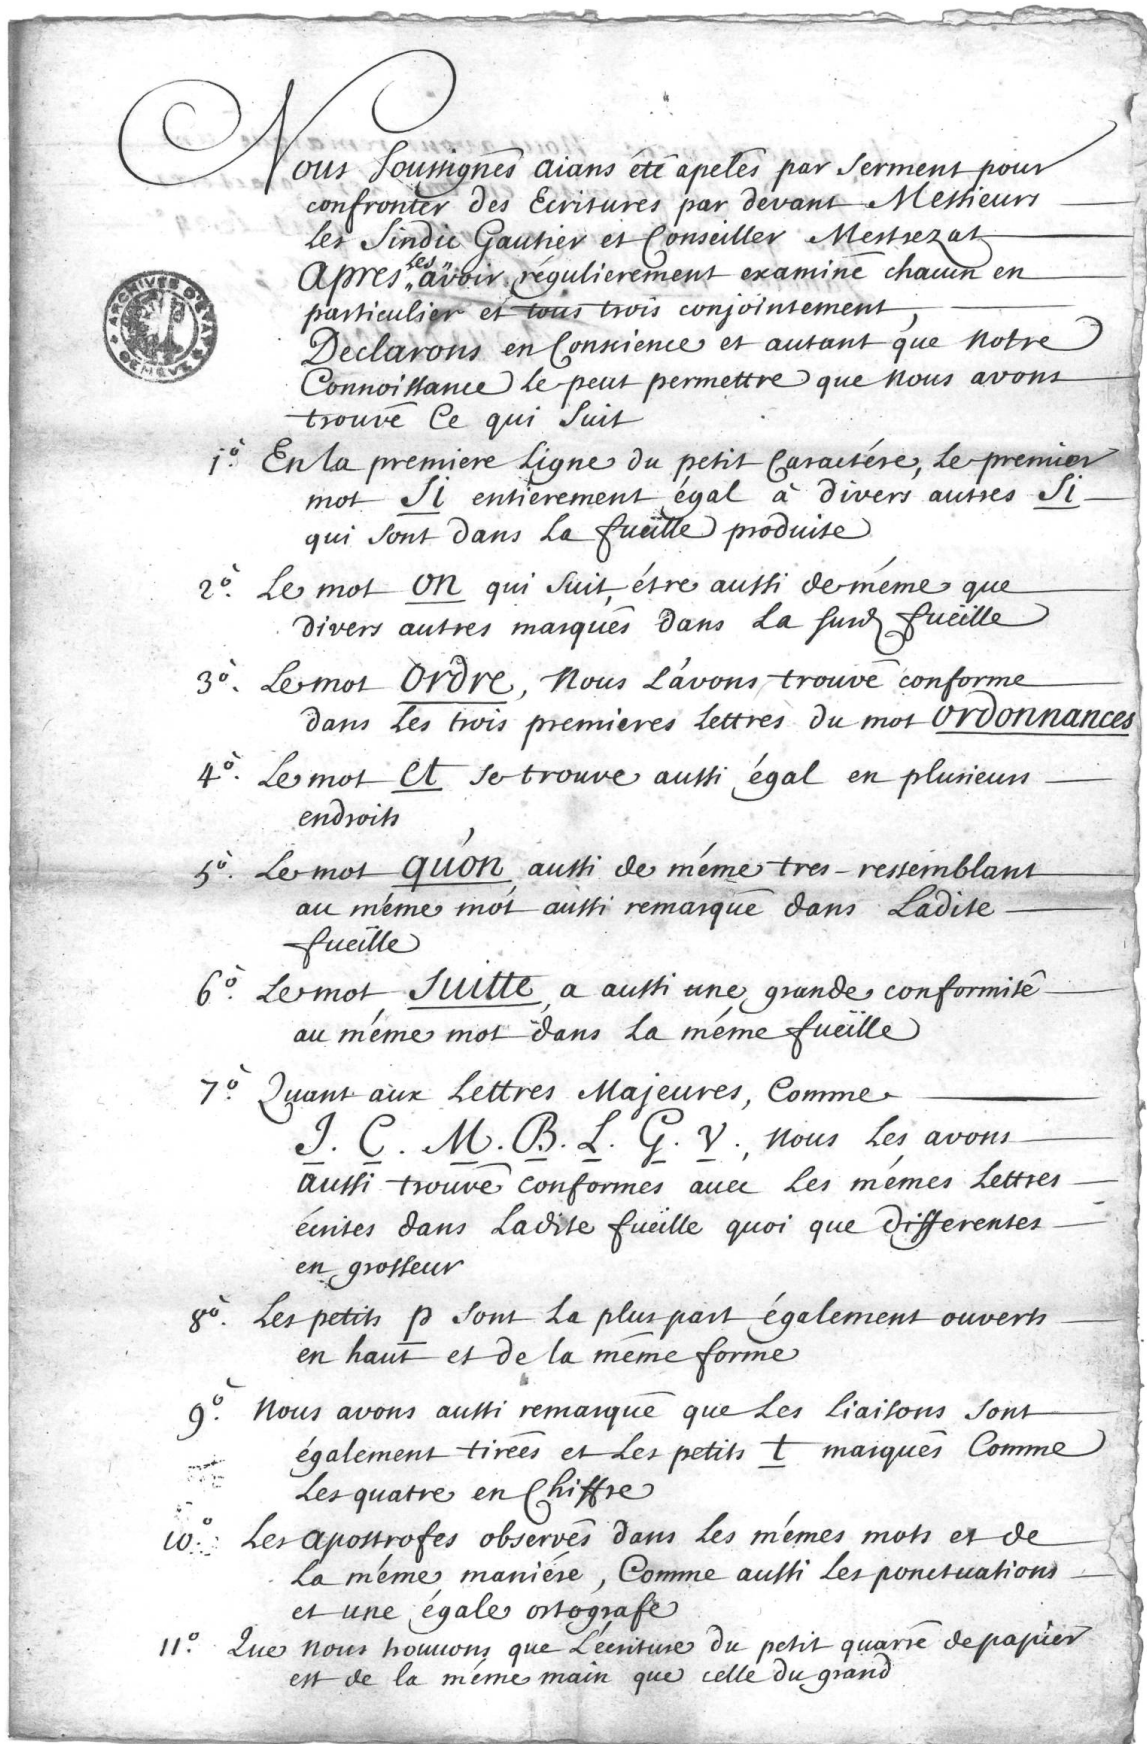 Nous Soussignés aians été apelés par Serment pour
confronter des Ecritures par devant Messieurs
les Sindic Gautier et Conseiller Mestrezat
apres les avoir régulierement examiné chacun en
particulier et tous trois conjointement,
Declarons en Conscience et autant que Notre
Connoissance le peut permettre que Nous avons
trouvé Ce qui Suit
1º. En la premiere Ligne du petit Caractére, le premier
mot Si entierement égal à divers autres Si
qui sont dans la fueïlle produite
2º. Le mot on qui Suit, étre aussi de méme que
divers autres marqués dans la susd. fueïlle
3º. Le mot Ordre, Nous L'avons trouvé conforme
dans les trois premieres lettres du mot Ordonnances
4º. Le mot et se trouve aussi égal en plusieurs
endroits
5º. Le mot qu'on aussi de méme tres-ressemblant
au méme mot aussi remarqué dans Ladite
fueïlle
6º. Le mot Suitte a aussi une grande conformité
au méme mot dans la méme fueïlle
7º. Quant aux Lettres Majeures, Comme
J. C. M. B. L. G. V., Nous les avons
aussi trouvé conformes avec les mémes Lettres
écrites dans Ladite fueïlle quoi que differentes
en grosseur
8º. Les petits p sont la plus part également ouverts
en haut et de la méme forme
9º. Nous avons aussi remarqué que les liaisons sont
également tirées et les petits t marqués Comme
les quatre en Chiffre
10º. Les apostrofes observés dans les mémes mots et de
la méme maniére, Comme aussi les ponctuations
et une égale ortografe
11º. Que nous trouvons que L'écriture du petit quarré de papier
est de la méme main que celle du grand
ARCHIVES D'ETAT
GENEVE